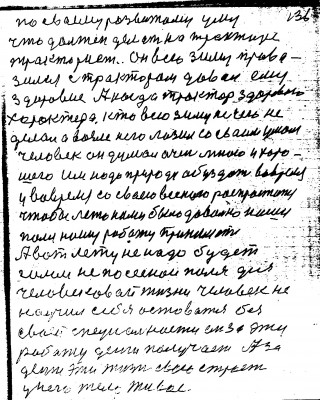 по своему развитому уму 136
что должен делать на практике
тракторист. Он всю зиму прово-
зился с трактором давал ему
здоровие А когда трактор здорового
характера, кто всю зиму ничего не
делал а возле него лазил со своим умом
человек он думал очень много и хоро-
шего Им надо природу обуздать вовремя
и вовремя со своего весеннего распростоту
чтобы лето нами было довольно нашу
поли нашу работу принимать
А вот лету не надо будет
голом не посеяной поля для
человековой жизни человек не
научил себя оставатся без
своей специалности он за эту
работу денги получает А за
денги эти тот свое строет
у него тело живое.